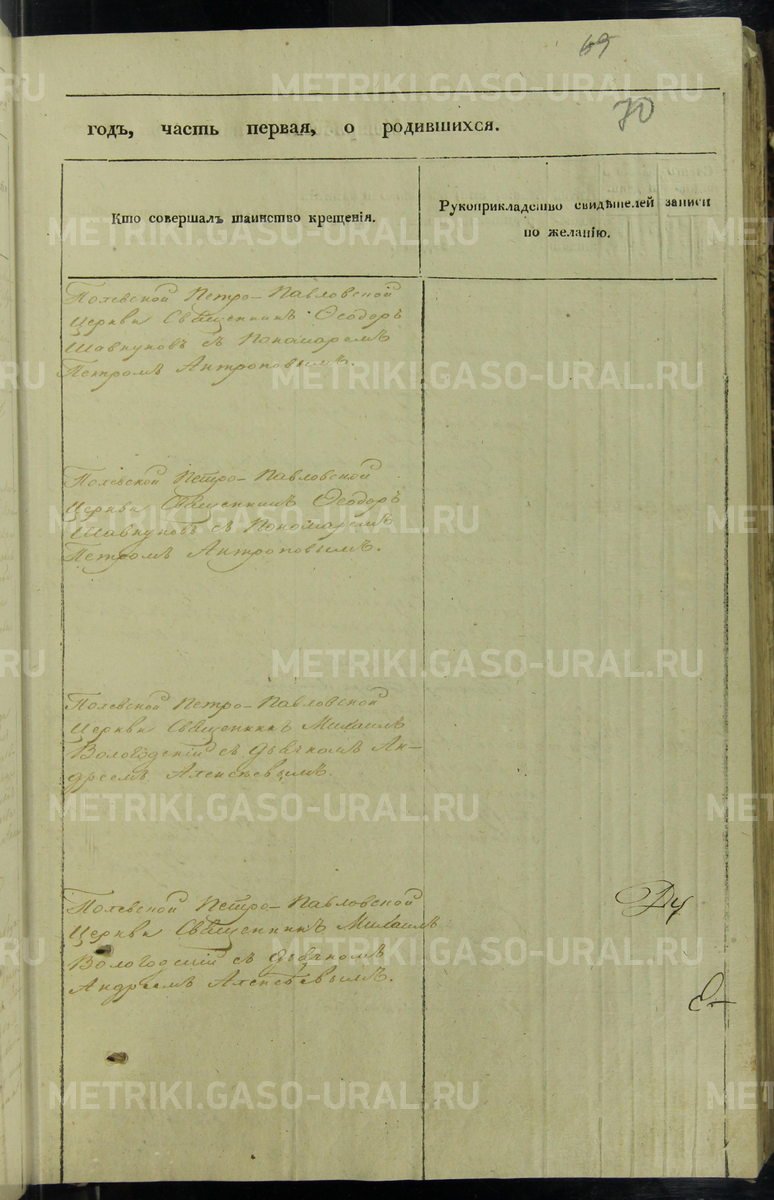 69
70
годъ, часть первая, о родившихся.
Кто совершалъ таинство крещенія.
Рукоприкладство свидѣтелей записи
по желанію.
Полевской Петро-Павловской
Церкви Священникъ Ѳеодоръ
Шавкуновъ съ Пономаремъ
Петромъ Антроповымъ.
Полевской Петро-Павловской
Церкви Священникъ Ѳеодоръ
Шавкуновъ съ Пономаремъ
Петромъ Антроповымъ.
Полевской Петро-Павловской
Церкви Священникъ Михаилъ
Вологодскій съ Дьячкомъ Ан-
дреемъ Алексѣевымъ.
Полевской Петро-Павловской
Церкви Священникъ Михаилъ
Вологодскій съ Дьячкомъ
Андреемъ Алексѣевымъ.
METRIKI.GASO-URAL.RU